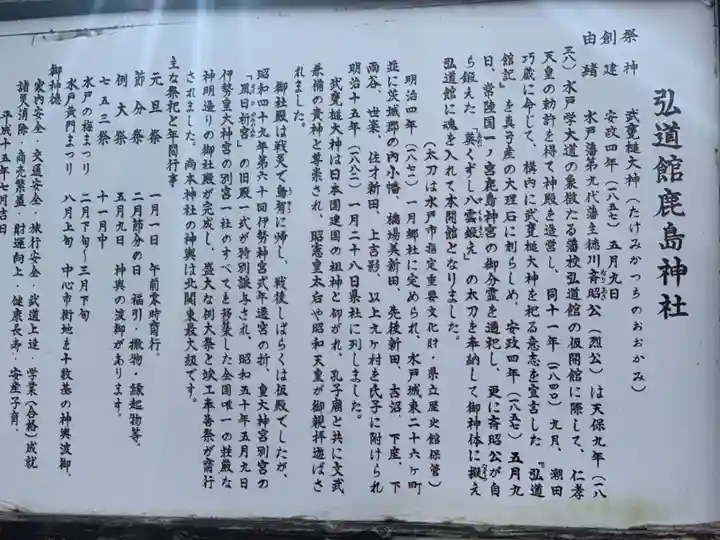 弘道館鹿島神社
祭神　武甕槌大神（たけみかつちのおおかみ）
創建　安政四年（一八五七）五月九日
由緒　水戸藩第九代藩主徳川斉昭公（烈公）は天保九年（一八
三八）水戸学大道の象徴たる藩校弘道館の仮開館に際して、仁孝
天皇の勅許を得て神殿を造営し、同十一年（一八四〇）九月、潮田
巧蔵に命じて、構内に武甕槌大神を祀る意志を宣言した『弘道
館記』を真弓産の大理石に刻らしめ、安政四年（一八五七）五月九
日、常陸国一ノ宮鹿島神宮の御分霊を遷祀し、更に斉昭公が自
ら鍛えた『葵くずし八雲鍛え』の太刀を奉納して御神体に擬え
弘道館に魂を入れて本開館となりました。
（太刀は水戸市指定重要文化財・県立歴史館保管）
明治四年（一八七一）一月郷社に定められ、水戸城東二十六ヶ町
並に茨城郡の内小幡、橋場美新田、先後新田、古沼、下座、下
雨谷、世楽、佐才新田、上吉影、以上九ヶ村を氏子に附けられ
明治十五年（一八八二）一月二十八日県社に列しました。
武甕槌大神は日本国建国の祖神と仰がれ、孔子廟と共に文武
兼備の貴神と尊崇され、昭憲皇太后や昭和天皇が御親拝遊ばさ
れました。
御社殿は戦災で烏有に帰し、戦後しばらくは仮殿でしたが、
昭和四十九年第六十回伊勢神宮式年遷宮の折、皇大神宮別宮の
「風日祈宮」の旧殿一式が特別譲与され、昭和五十年五月九日
伊勢皇大神宮の別宮一社のすべてを移築した全国唯一の荘厳な
神明造りの御社殿が完成し、盛大な例大祭と竣工奉告祭が斎行
されました。尚本神社の神輿は北関東最大級です。
主な祭祀と年間行事
元旦祭　一月一日　午前零時斎行。
節分祭　二月節分の日　福引・撒物・縁起物等。
例大祭　五月九日　神輿の渡御があります。
七五三祭　十一月中
水戸の梅まつり　二月下旬〜三月下旬
水戸黄門まつり　八月上旬　中心市街地を十数基の神輿渡御。
御神徳
家内安全・交通安全・旅行安全・武道上達・学業（合格）成就
諸災消除・商売繁盛・財運向上・健康長寿・安産子育。
平成十五年七月吉日